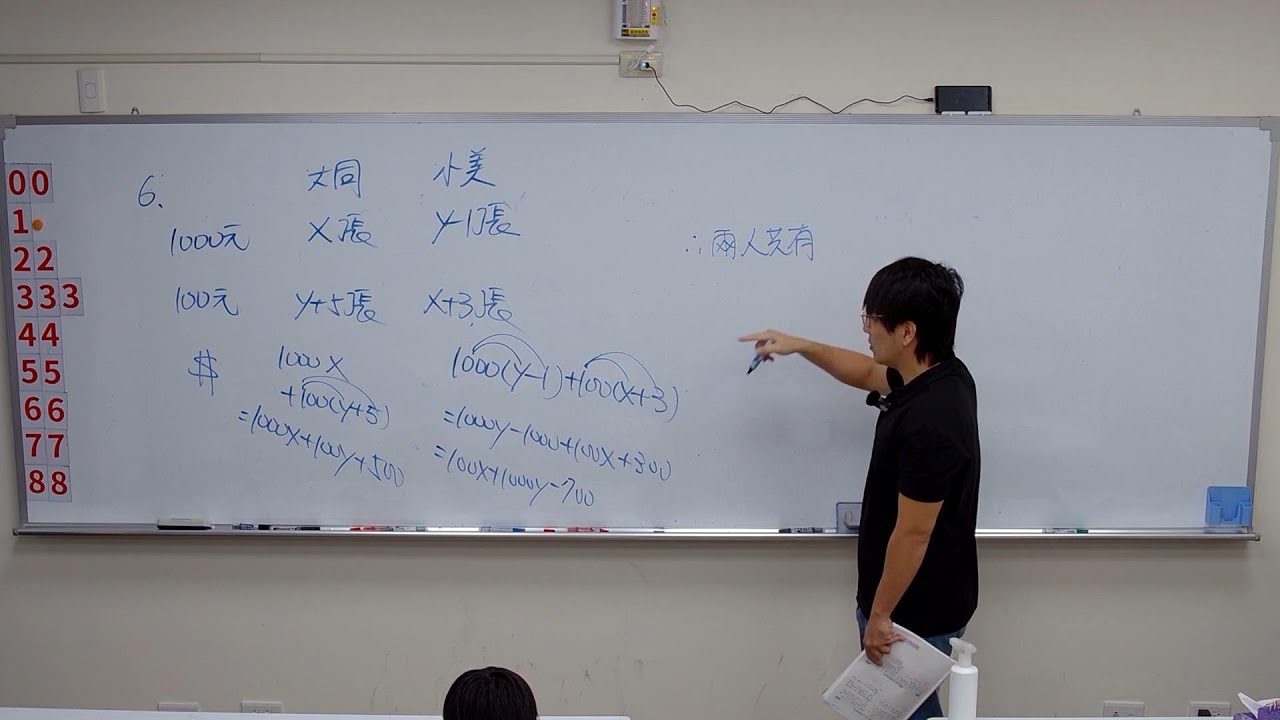 00
1
22
333
44
55
66
77
88
6. 大同 小美
1000元 x張 y-1張
100元 y+5張 x+3張
$ 1000x
+100(y+5)
=1000x+100y+500
1000(y-1)+100(x+3)
=1000y-1000+100x+300
=100x+1000y-700
∴兩人共有